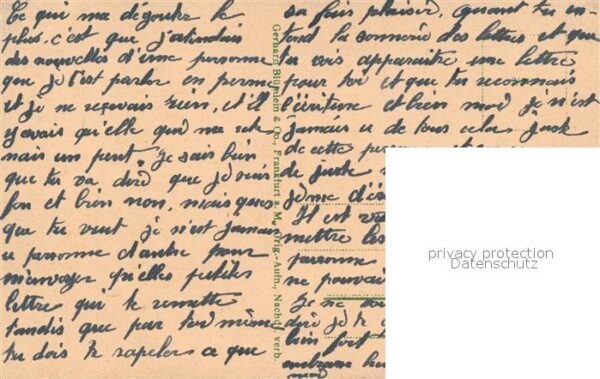 Ce qui ma dégoute le
plus, c'est que j'atendais
des nouvelles d'une personne
que je t'est parler en perme
et je ne recevais rien, et il
y avais qu'elle qui me
mais un peut je sais bien
que tu va dire que je suis
fou et bien non, mais que
que tu veut je n'est jamais
u personne d'autre pour
m'envoyer qu'elles petites
lettre qui te remette
tandis que par toi même
tu dois te rapeler a que
sa fais plaisir, quant tu en-
tend la sonnerie des lettres et que
tu vois apparaitre une lettre
pour toi et que tu reconnais
l'écriture et bien moi je n'est
jamais u de tous cela juste
de cette
de juste
je me d'és
Il est vr
mettre les
personne
ne pouvai
Je ne
dire je te
bien fort
embrasse
Gerhard Blümlein & Co., Frankfurt a. M. Orig.-Aufn., Nachdr. verb.
privacy protection
Datenschutz